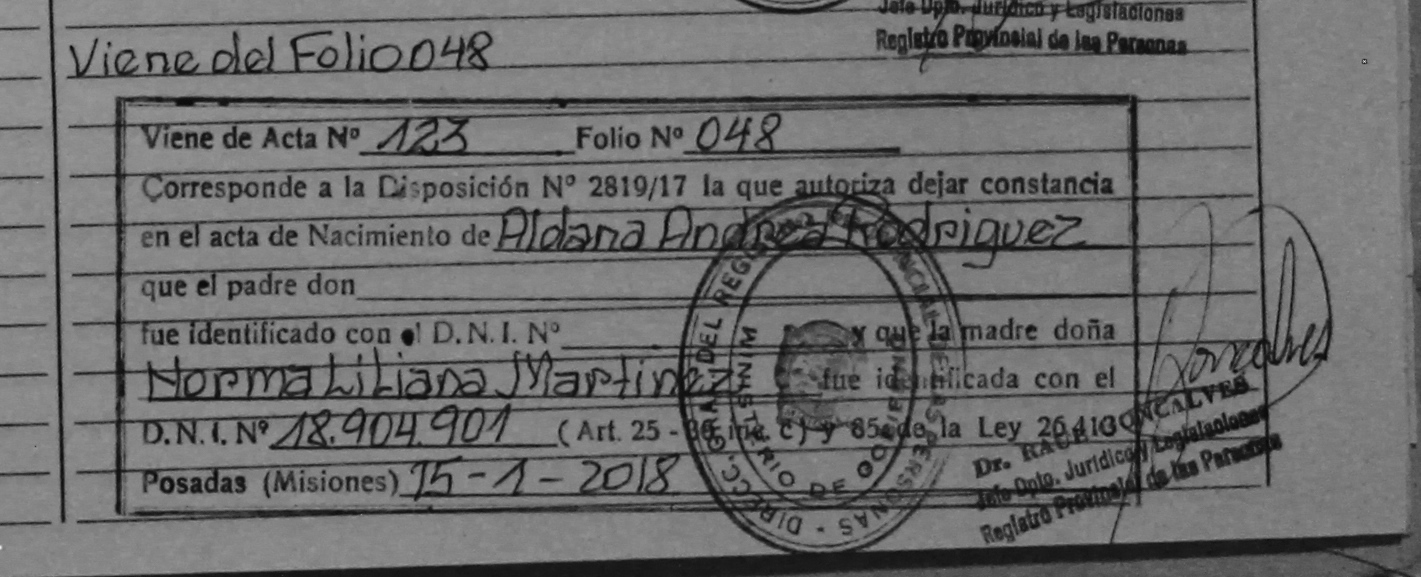 Jefe Dpto. Jurídico y Legislaciones
Registro Provincial de las Personas
Viene del Folio 048
Viene de Acta Nº 123 Folio Nº 048
Corresponde a la Disposición Nº 2819/17 la que autoriza dejar constancia
en el acta de Nacimiento de Aldana Andrea Rodriguez
que el padre don
fue identificado con el D.N.I. Nº y que la madre doña
Norma Liliana Martinez fue identificada con el
D.N.I. Nº 18.904.901 (Art. 25 - 36 inc. c) y 85 de la Ley 26413
Posadas (Misiones) 15-1-2018
DIRECC. GRAL. DEL REG. PROVINCIAL DE LAS PERSONAS
MINISTERIO DE GOBIERNO
Goncalves
Dr. RAUL GONCALVES
Jefe Dpto. Jurídico y Legislaciones
Registro Provincial de las Personas